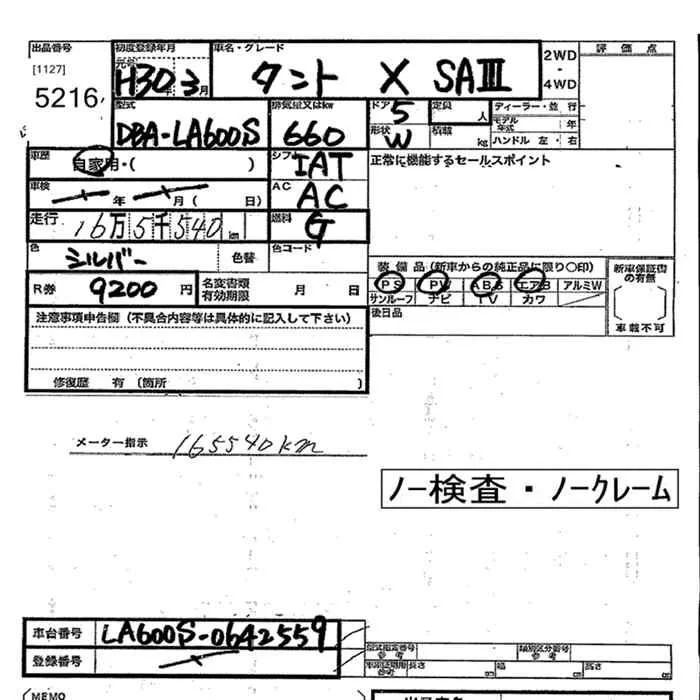 出品番号 初度登録年月 車名・グレード 2WD 評価点
[1127] 元号 H30 年 3 月 タント X SAⅢ ・
5216 4WD
型式 排気量又はkw ドア 5 定員 人 ディーラー・並 行
DBA-LA600S 660 形状 W 積載 kg モデル年式 年
ハンドル 左・右
車歴 自家用・( ) シフト IAT 正常に機能するセールスポイント
車検 年 月( 日) AC AC
走行 16万5千540km 燃料 G
色 シルバー 色替 色コード
装備品(新車からの純正品に限り○印) 新車保証書の有無
R券 9200 円 名変書類有効期限 月 日 PS PW ABS エアB アルミW
サンルーフ ナビ TV カワ
注意事項申告欄(不具合内容等は具体的に記入して下さい) 後日品 車載不可
修復歴 有 〔箇所 〕
メーター指示 165540km
ノー検査・ノークレーム
車台番号 LA600S-0642559
登録番号 型式指定番号 参考 類別区分番号 参考
長さ 幅 高さ
MEMO